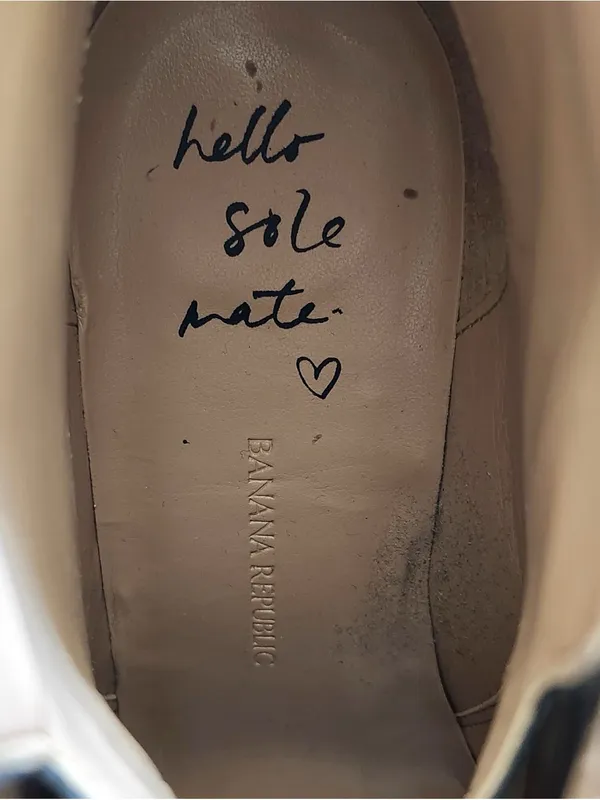 hello
sole
mate.
♡
BANANA REPUBLIC